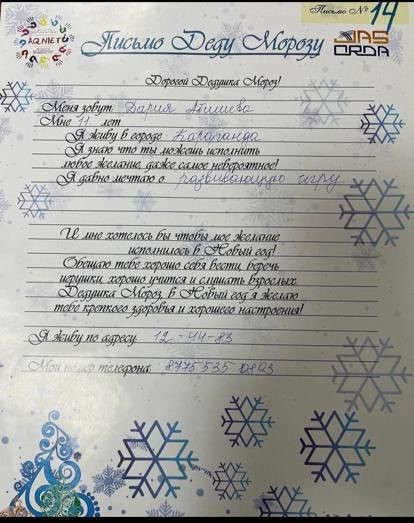 Письмо № 14
AQNIET
JAS
ORDA
Письмо Деду Морозу
Дорогой Дедушка Мороз!
Меня зовут Дария Абишева
Мне 11 лет
Я живу в городе Караганда
Я знаю что ты можешь исполнить
любое желание, даже самое невероятное!
Я давно мечтаю о развивающую игру
И мне хотелось бы чтобы мое желание
исполнилось в Новый год!
Обещаю тебе хорошо себя вести, беречь
игрушки, хорошо учится и слушать взрослых.
Дедушка Мороз, в Новый год я желаю
тебе крепкого здоровья и хорошего настроения!
Я живу по адресу: 12-44-83
Мой номер телефона: 8775 535